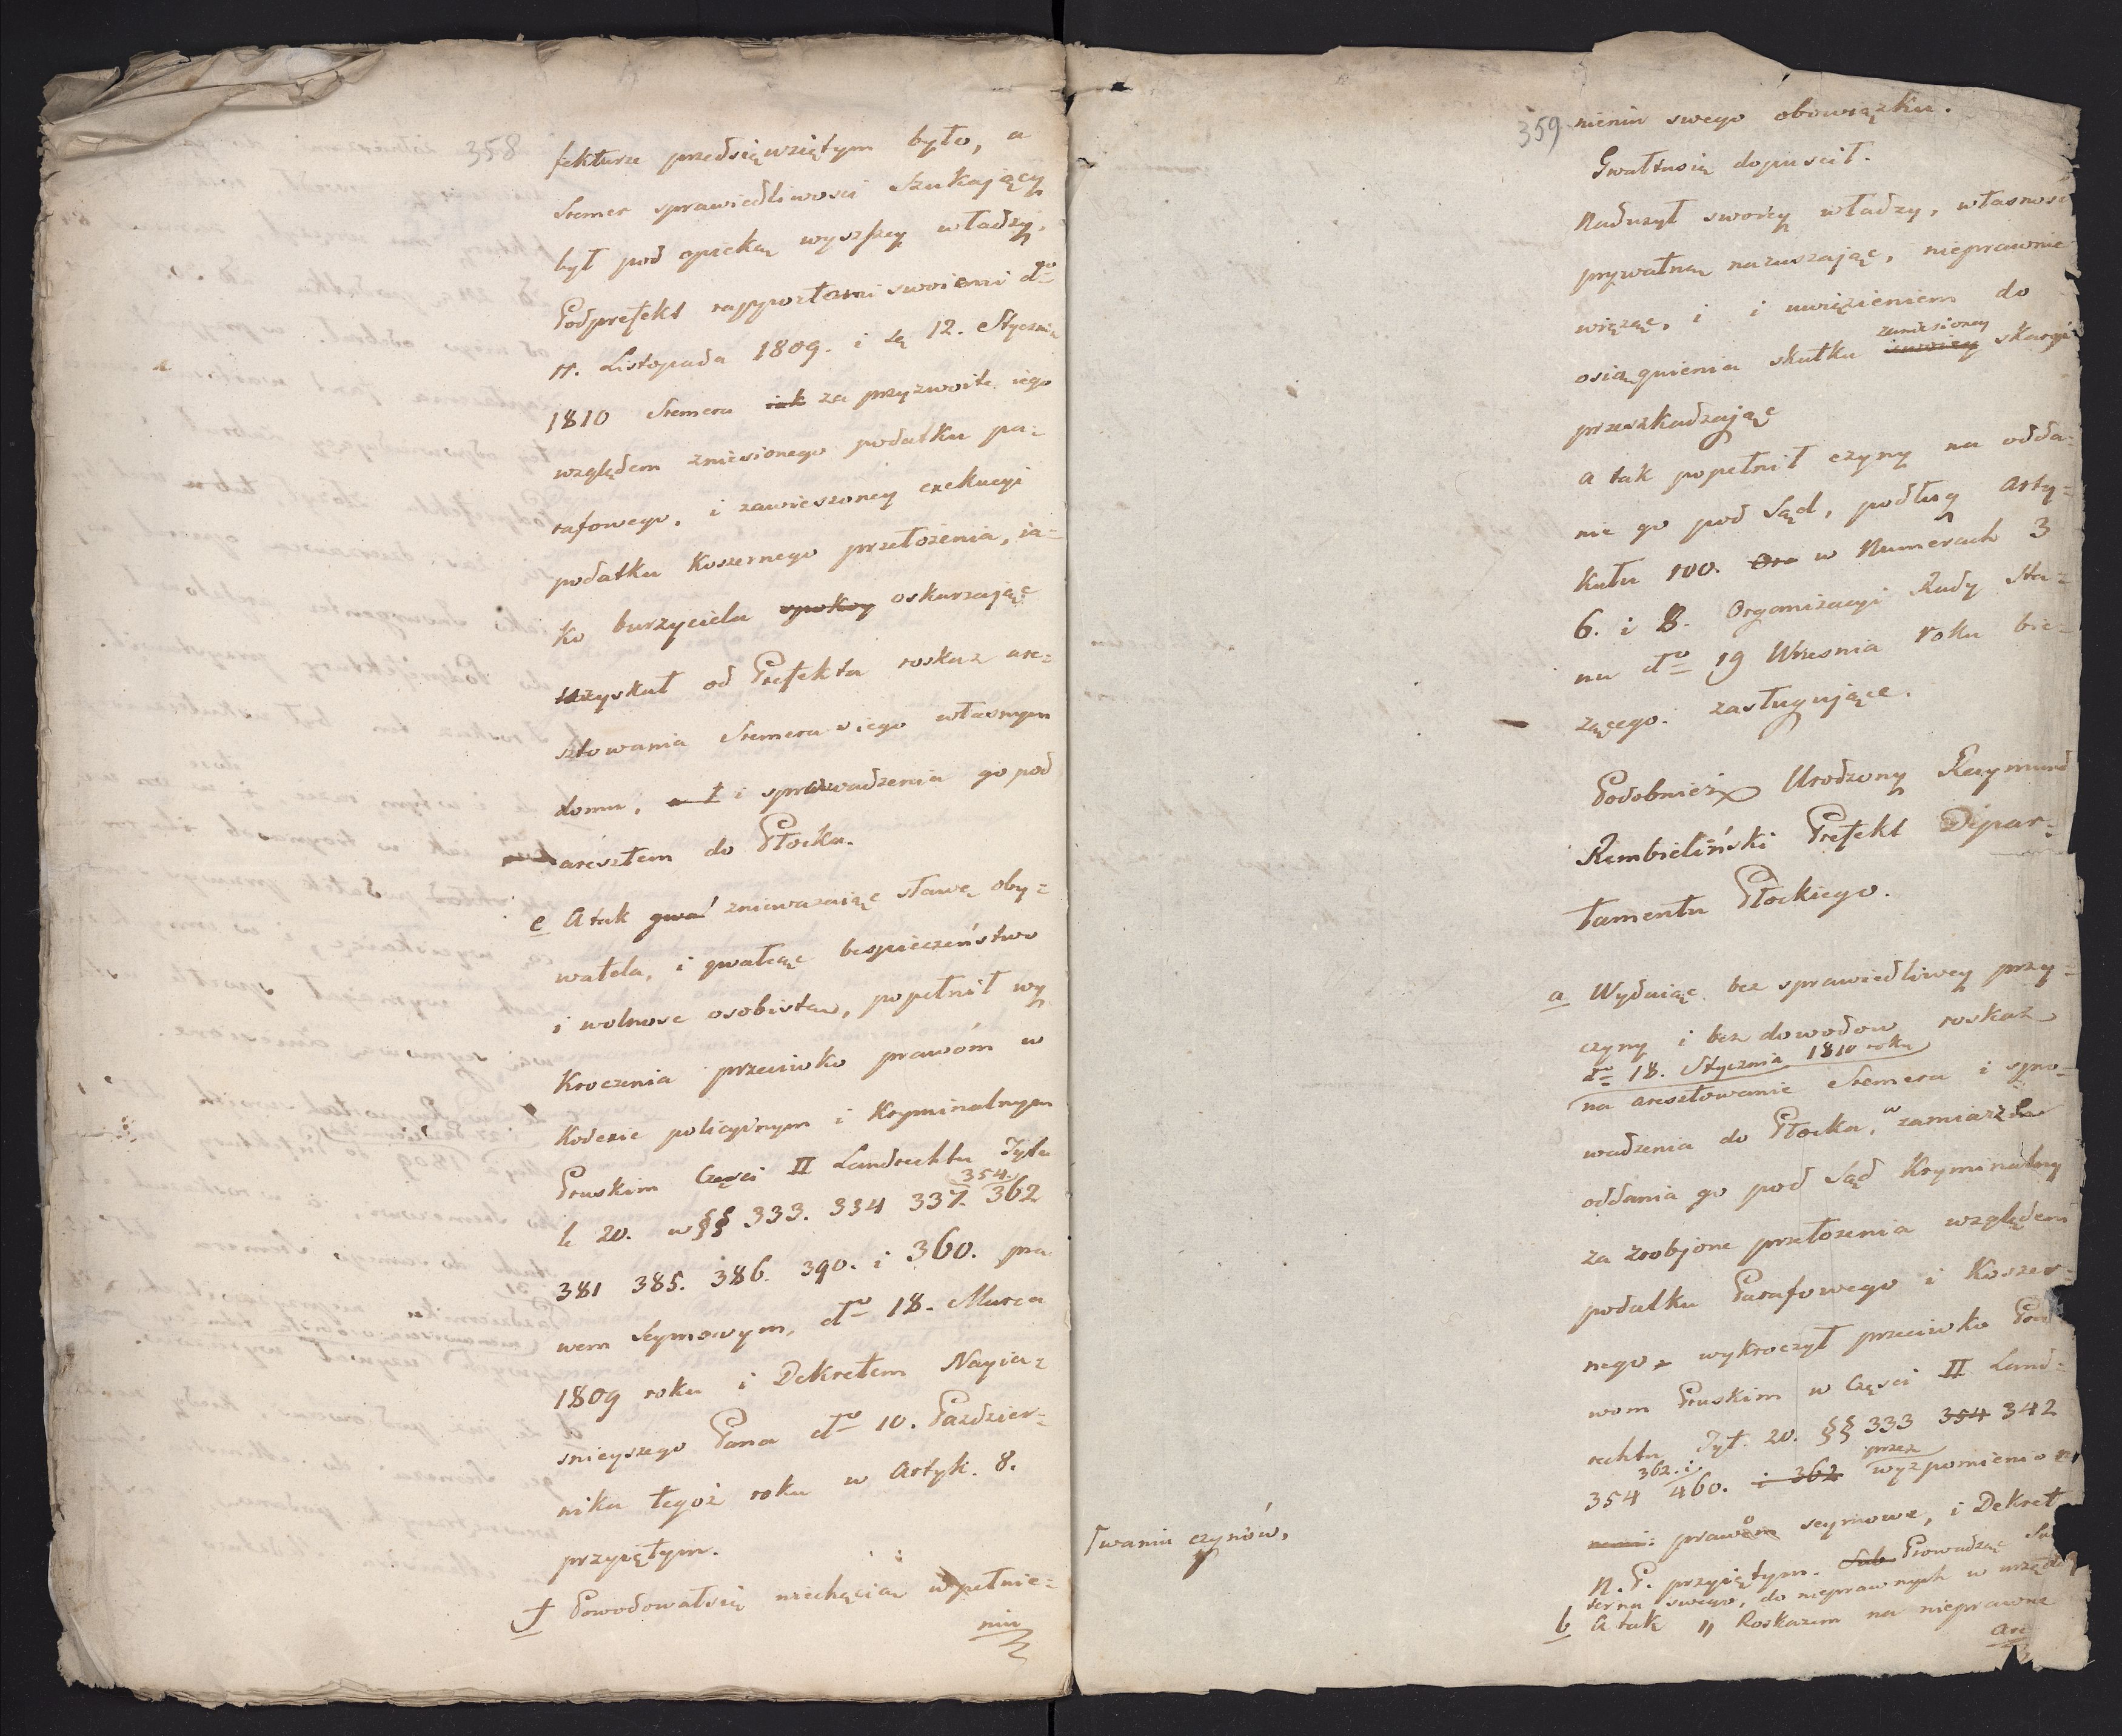 358
fekturze przedsięwziętym było, a
Sremer sprawiedliwosci szukaiący
był pod opieką wyszszey władzy,
Podprefekt rapportami swoiemi dto
11. Listopada 1809. i 12. Stycznia
1810 Sremera iak za przyzwoite iego
względem zniesionego podatku pa=
rafowego, i zawieszoney exekucyi
podatku koszernego przełożenia, ia=
ko burzyciela spokoy oskarzaiąc
uzyskał od Prefekta roskaz are=
sztowania Sremera w iego własnym
domu, i sprowadzenia go pod
aresztem do Płocka.
e A tak gwał zniewazaiąc sławę oby=
watela, i gwałcąc bespieczeństwo
i wolnosc osobistą, popełnił wy
kroczenia przeciwko prawóm w
kodexie policyinym i kryminalnym
Pruskim Częsci II Landrechtu Tytu
354.
le 20. w §§ 333. 334 337. 362
381 385. 386. 390. i 360. pra
wem Seymowym, dto 18. Marca
1809 roku i Dekretem Nayia=
snieyszego Pana dto 10. Pazdzier=
nika tegoż roku w Artyk. 8.
przyiętym.
f Powodowałsię niechęcią w pełnie=
niu
359
nieniu swego obowiązku.
Gwałtusię dopuscił.
Naduzył swoiey władzy, własnosc
prywatną naruszaiąc, nieprawnie
więżąc, i i uwięzieniem do
zaniesioney
osiągnienia skutku swoiey skargi
przeszkadzaiąc
a tak popełnił czyny na odda=
nie go pod Sąd, podług Arty=
kułu 100. Ora w Numerach 3
6. i 8. Organizacyi Rady Sta=
nu dto 19 Wrzesnia roku bie=
zącego. zasługuiące.
Podobnież Urodzony Raymund
Rembieliński Prefekt Depar=
tamentu Płockiego.
a Wydaiąc bez sprawiedliwey przy=
czyny i bez dowodow roskaz
dto 18. Stycznia 1810 roku
na aresztowanie Sremera i spro=
wadzenia do Płocka, w zamiarze
oddania go pod Sąd Kryminalny
za zrobione przełożenia względem
podatku Parafowego i Koszer=
nego wykroczył przeciwko Pra
wom Pruskim w Częsci II Land=
rechtu Tyt. 20. §§ 333 354 342
362. i przez
354 460. i 362 wyzpomienio
prawom seymowe, i Dekret
N. P. przyiętym. Prowadząc
do nieprawnych w urzędo
Twaniu czynów,
b A tak Roskazem na nieprawne
are